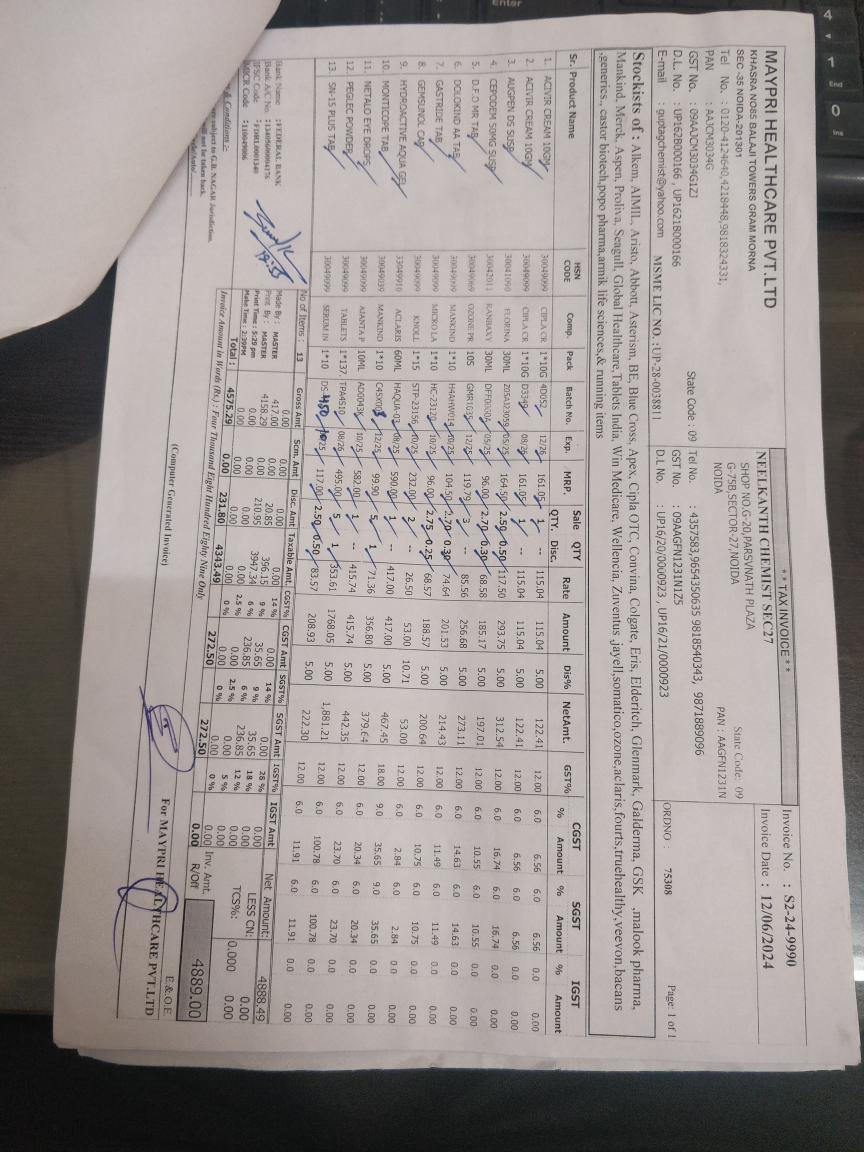 ** TAX INVOICE **
MAYPRI HEALTHCARE PVT.LTD
KHASRA NO85 BALAJI TOWERS GRAM MORNA
SEC -35 NOIDA-201301
Tel No. : 0120-4124640,4218448,9818324331,
PAN : AAJCM3034G
GST No. : 09AAJCM3034G1ZJ State Code : 09
D.L. No. : UP162B000166 , UP1621B000166
E-mail : guptagchemist@yahoo.com MSME LIC NO. :UP-28-0038811
NEELKANTH CHEMIST SEC27
SHOP NO.G-20,PARSVNATH PLAZA
G-75B,SECTOR-27,NOIDA
NOIDA
State Code: 09
PAN : AAGFN1231N
Tel No. : 4357583,9654350635 9818540343, 9871889096
GST No. : 09AAGFN1231N1Z5
D.L No. : UP16/20/0000923 , UP16/21/0000923
Invoice No. : S2-24-9990
Invoice Date : 12/06/2024
ORDNO : 75308
Page: 1 of 1
Stockists of : Alkem, AIMIL, Aristo, Abbott, Asterism, BE, Blue Cross, Apex, Cipla OTC, Convina, Colgate, Eris, Elderitch, Glenmark, Galderma, GSK ,malook pharma,
Mankind, Merck, Aspen, Proliva, Seagull, Global Healthcare,Tablets India, Win Medicare, Wellencia, Zuventus ,jayell,somatico,ozone,aclaris,fourts,truehealthy,veevon,bacans
,generics., castor biotech,popo pharma,armik life sciences,& running items
Sr. Product Name HSN CODE Comp. Pack Batch No. Exp. MRP. Sale QTY. QTY Disc. Rate Amount Dis% NetAmt. GST% CGST % Amount SGST % Amount IGST % Amount
1. ACIVIR CREAM 10GM 30049099 CIPLA CR 1*10G 4D052 12/26 161.05 1 -- 115.04 115.04 5.00 122.41 12.00 6.0 6.56 6.0 6.56 0.0 0.00
2. ACIVIR CREAM 10GM 30049099 CIPLA CR 1*10G 08/26 161.05 1 -- 115.04 115.04 5.00 122.41 12.00 6.0 6.56 6.0 6.56 0.0 0.00
3. AUGPEN DS SUSP 30041090 FLORINA 30ML 05/25 164.50 2.50 0.50 117.50 293.75 5.00 312.54 12.00 6.0 16.74 6.0 16.74 0.0 0.00
4. CEPODEM 50MG SUSP 30042011 RANBAXY 30ML 05/25 96.00 2.70 0.30 68.58 185.17 5.00 197.01 12.00 6.0 10.55 6.0 10.55 0.0 0.00
5. D.F.O MR TAB 30049069 OZONE PR 10S 12/25 119.79 3 -- 85.56 256.68 5.00 273.11 12.00 6.0 14.63 6.0 14.63 0.0 0.00
6. DOLOKIND AA TAB 30049099 MANKIND 1*10 H4AHW014 10/25 104.50 2.70 0.30 74.64 201.53 5.00 214.43 12.00 6.0 11.49 6.0 11.49 0.0 0.00
7. GASTRIDE TAB 30049099 MICRO LA 1*10 10/25 96.00 2.75 0.25 68.57 188.57 5.00 200.64 12.00 6.0 10.75 6.0 10.75 0.0 0.00
8. GEMSUNOL CAP 30049099 KNOLL 1*15 STP-23156 10/25 232.00 2 -- 26.50 53.00 10.71 53.00 12.00 6.0 2.84 6.0 2.84 0.0 0.00
9. HYDROACTIVE AQUA GEL 33049910 ACLARIS 60ML 08/25 590.00 1 -- 417.00 417.00 5.00 467.45 18.00 9.0 35.65 9.0 35.65 0.0 0.00
10. MONTICOPE TAB 30049039 MANKIND 1*10 12/25 99.90 5 -- 71.36 356.80 5.00 379.64 12.00 6.0 20.34 6.0 20.34 0.0 0.00
11. NETALO EYE DROPS 30049099 AJANTA P 10ML AD0043K 10/25 582.00 1 -- 415.74 415.74 5.00 442.35 12.00 6.0 23.70 6.0 23.70 0.0 0.00
12. PEGLEC POWDER 30049099 TABLETS 1*137. TPA4S10 08/26 495.00 5 1 353.61 1768.05 5.00 1,881.21 12.00 6.0 100.78 6.0 100.78 0.0 0.00
13. SN-15 PLUS TAB 30049099 SERUM IN 1*10 DS-450 10/25 117.00 2.50 0.50 83.57 208.93 5.00 222.30 12.00 6.0 11.91 6.0 11.91 0.0 0.00
No of Items : 13
Bank Name : FEDERAL BANK
Bank A/C No.
IFSC Code : FDRL0001340
MICR Code : 110049006
& Conditions :-
subject to G.B. NAGAR Jurisdiction.
will not be taken back.
Made By : MASTER
Print By : MASTER
Print Time : 5:29 pm
Make Time : 2:39PM
Gross Amt Scm. Amt Disc. Amt Taxable Amt. CGST% CGST Amt SGST% SGST Amt IGST% IGST Amt
0.00 0.00 0.00 0.00 14 % 0.00 14 % 0.00 28 % 0.00
417.00 0.00 20.85 396.15 9 % 35.65 9 % 35.65 18 % 0.00
4158.29 0.00 210.95 3947.34 6 % 236.85 6 % 236.85 12 % 0.00
0.00 0.00 0.00 0.00 2.5 % 0.00 2.5 % 0.00 5 % 0.00
0.00 0.00 0.00 0.00 0 % 0.00 0 % 0.00 0 % 0.00
Total : 4575.29 0.00 231.80 4343.49 272.50 272.50 0.00
Net Amount: 4888.49
LESS CN: 0.00
TCS%: 0.000 0.00
Inv. Amt. R/Off 4889.00
Invoice Amount in Words (Rs.) : Four Thousand Eight Hundred Eighty Nine Only
E.& O.E
(Computer Generated Invoice)
For MAYPRI HEALTHCARE PVT.LTD
Enter
4
1
End
0
Ins